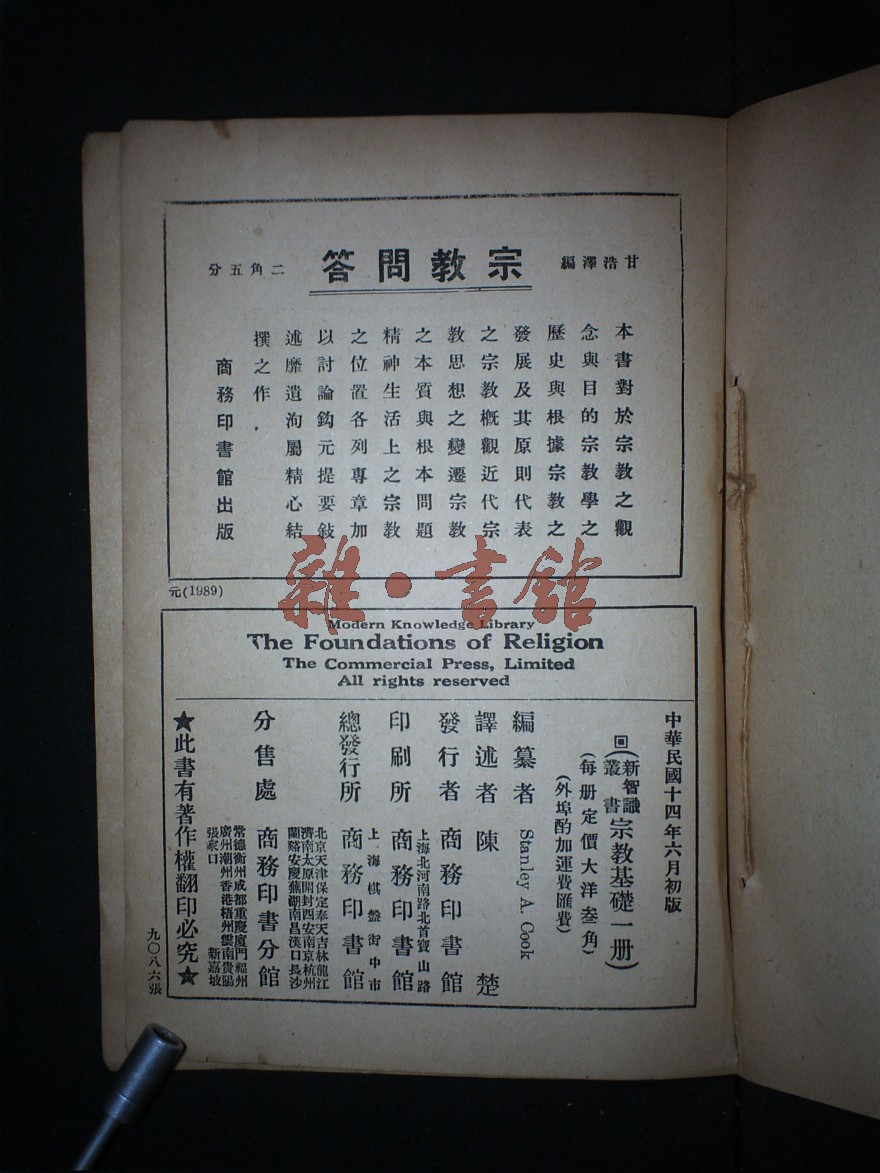 甘浩澤編
宗教問答
二角五分
本書對於宗教之觀
念與目的宗教學之
歷史與根據宗教之
發展及其原則代表
之宗教概觀近代宗
教思想之變遷宗教
之本質與根本問題
精神生活上之宗教
之位置各列專章加
以討論鈎元提要敍
述靡遺洵屬精心結
撰之作
商務印書館出版
元(1989)
雜·書館
Modern Knowledge Library
The Foundations of Religion
The Commercial Press, Limited
All rights reserved
中華民國十四年六月初版
回(新智識叢書宗教基礎一册)
(每册定價大洋叁角)
(外埠酌加運費匯費)
編纂者 Stanley A. Cook
譯述者 陳楚
發行者 商務印書館
上海北河南路北首寶山路
印刷所 商務印書館
上海棋盤街中市
總發行所 商務印書館
北京天津保定奉天吉林龍江
濟南太原開封西安南京杭州
蘭谿安慶蕪湖南昌漢口長沙
分售處 商務印書分館
常德衡州成都重慶廈門福州
廣州潮州香港梧州雲南貴陽
張家口 新嘉坡
★此書有著作權翻印必究★
九〇八六張